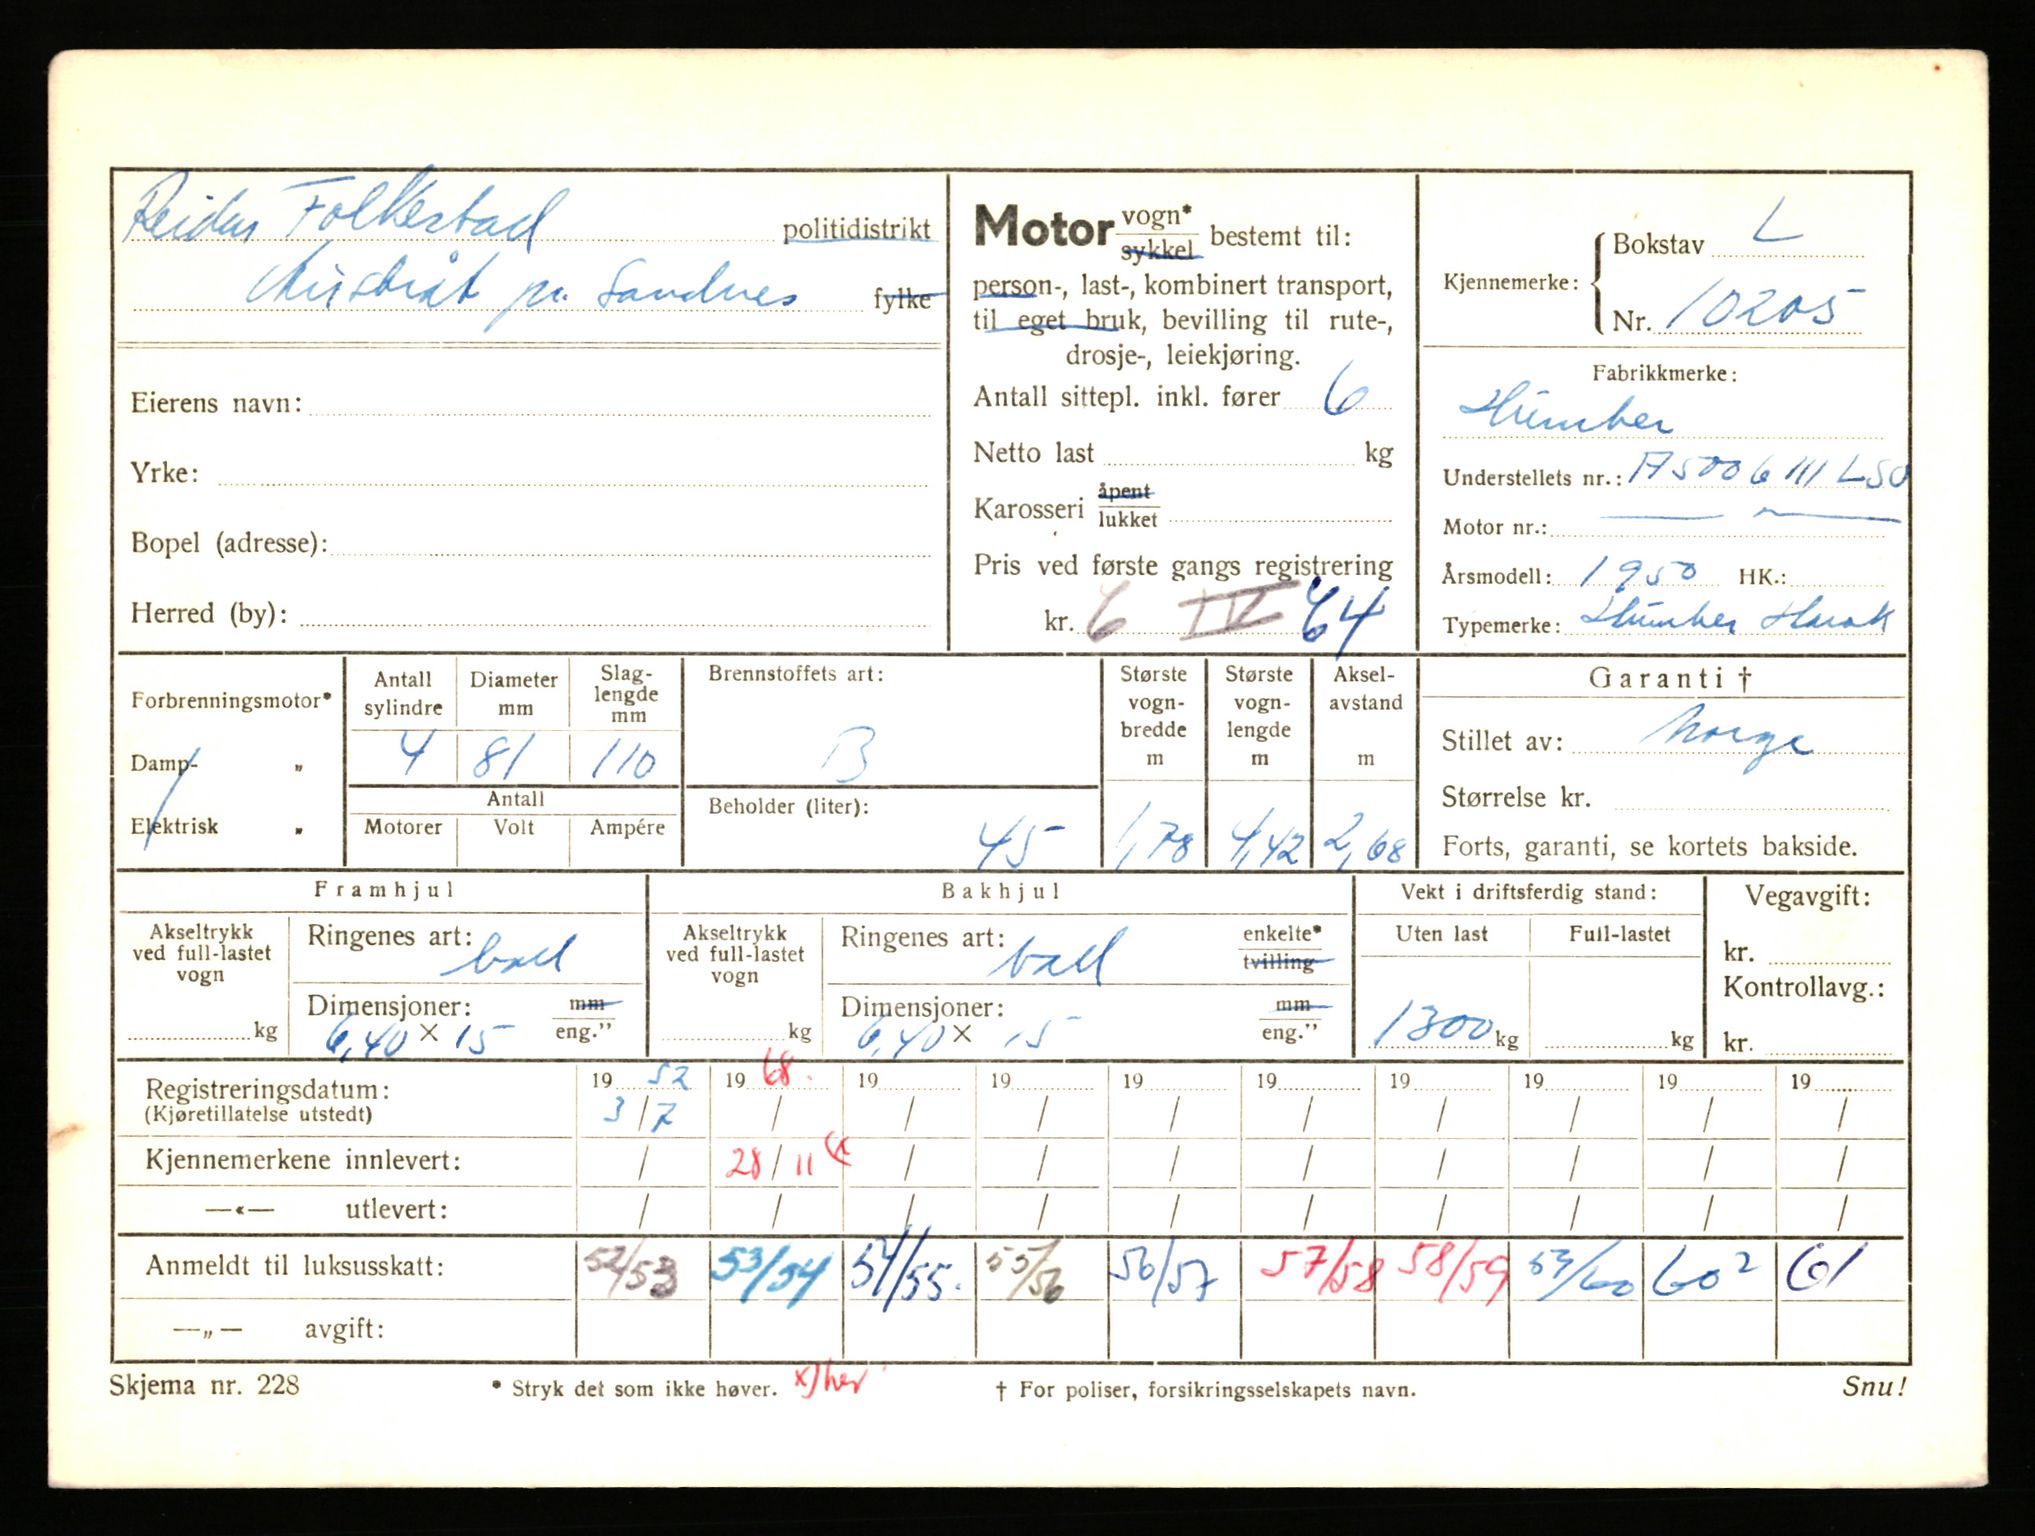 Reidar Folkestad politidistrikt
Austråt pr. Sandnes fylke
Eierens navn:
Yrke:
Bopel (adresse):
Herred (by):
Motor vogn*
sykkel bestemt til:
person-, last-, kombinert transport,
til eget bruk, bevilling til rute-,
drosje-, leiekjøring.
Antall sittepl. inkl. fører 6
Netto last kg
Karosseri åpent
lukket
Pris ved første gangs registrering
kr. 6 IV 64
Kjennemerke: { Bokstav L
Nr. 10205
Fabrikkmerke:
Humber
Understellets nr.: A5006111 LSO
Motor nr.:
Årsmodell: 1950 HK.:
Typemerke: Humber Hawk
Forbrenningsmotor*
Damp- „
Elektrisk „
Antall sylindre 4
Diameter mm 81
Slag-lengde mm 110
Antall
Motorer Volt Ampére
Brennstoffets art:
B
Beholder (liter):
45
Største vogn-bredde m 1,78
Største vogn-lengde m 4,42
Aksel-avstand m 2,68
Garanti †
Stillet av: Norge
Størrelse kr.
Forts, garanti, se kortets bakside.
Framhjul
Akseltrykk
ved full-lastet
vogn
kg
Ringenes art: ball
Dimensjoner: mm
6,40 × 15 eng.”
Bakhjul
Akseltrykk
ved full-lastet
vogn
kg
Ringenes art: ball enkelte*
tvilling
Dimensjoner: mm
6,40 × 15 eng.”
Vekt i driftsferdig stand:
Uten last Full-lastet
1300 kg kg
Vegavgift:
kr.
Kontrollavg.:
kr.
Registreringsdatum: 19 52 19 68. 19 19 19 19 19 19 19 19
(Kjøretillatelse utstedt) 3/7 / / / / / / / / /
Kjennemerkene innlevert: / 28/11 / / / / / / / /
—«— utlevert: / / / / / / / / / /
Anmeldt til luksusskatt: 52/53 53/54 54/55. 55/56 56/57 57/58 58/59 59/60 60² 61
—„— avgift:
Skjema nr. 228 * Stryk det som ikke høver. x) her † For poliser, forsikringsselskapets navn. Snu!